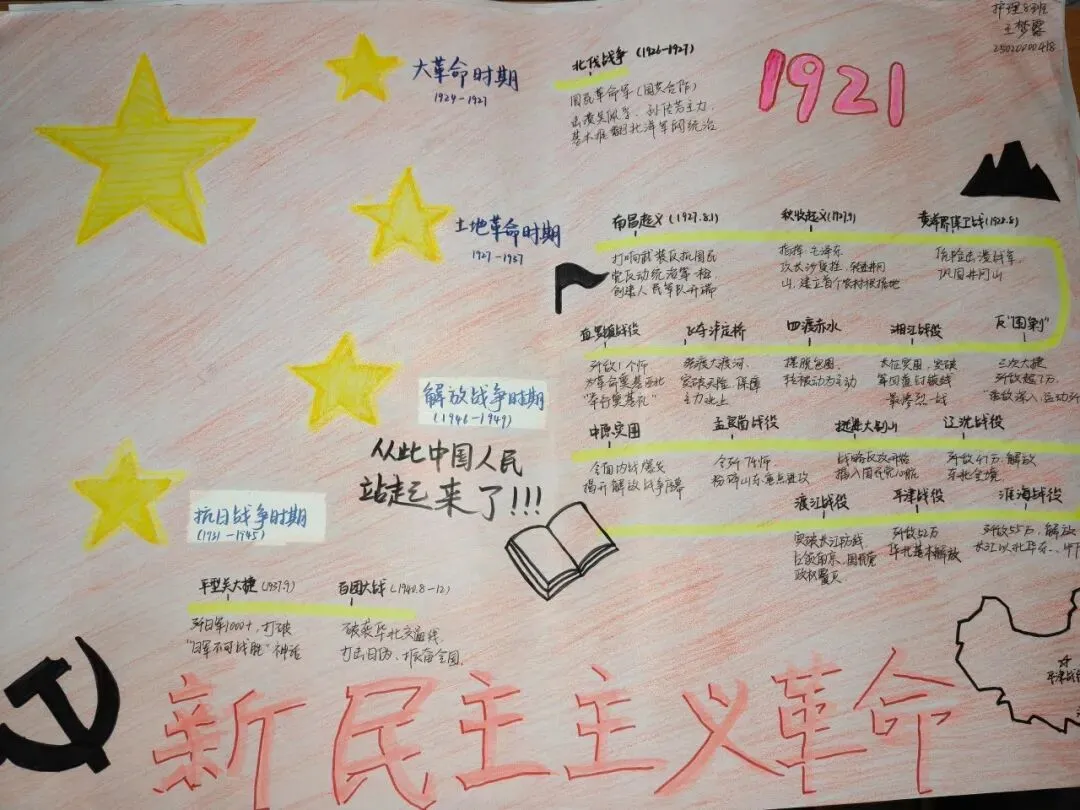 护理8班
王梦露
1921
大革命时期
1924-1927
北伐战争 (1926-1927)
国民革命军(国共合作)
击溃吴佩孚、孙传芳主力,
基本推翻北洋军阀统治
土地革命时期
1927-1937
南昌起义 (1927.8.1)
打响武装反抗国民
党反动统治第一枪,
创建人民军队开端
秋收起义(1927.9)
指挥:毛泽东
攻长沙受挫,转进井冈
山,建立首个农村根据地
黄洋界保卫战(1928.8)
凭险击溃敌军,
巩固井冈山
反"围剿"
三次大捷
歼敌超7万,
湘江战役
长征突围,突破
第四重封锁线
最惨烈一战
四渡赤水
摆脱包围
转被动为主动
飞夺泸定桥
强渡大渡河,
突破天险,保障
主力北上
直罗镇战役
歼敌1个师
为革命奠基西北
"举行奠基礼"
解放战争时期
(1946-1949)
中原突围
全面内战爆发
揭开解放战争序幕
孟良崮战役
全歼74师
粉碎山东重点进攻
挺进大别山
战略反攻开始
插入国统区心脏
辽沈战役
歼敌47万,解放
东北全境
淮海战役
歼敌55万,解放
长江以北华东、
平津战役
歼敌52万
华北基本解放
渡江战役
突破长江防线
占领南京,国民党
政权覆灭
从此中国人民
站起来了!!!
抗日战争时期
(1931-1945)
平型关大捷(1937.9)
歼日军1000+,打破
"日军不可战胜"神话
百团大战(1940.8-12)
破袭华北交通线,
打击日伪、振奋全国.
平津战役
新民主主义革命